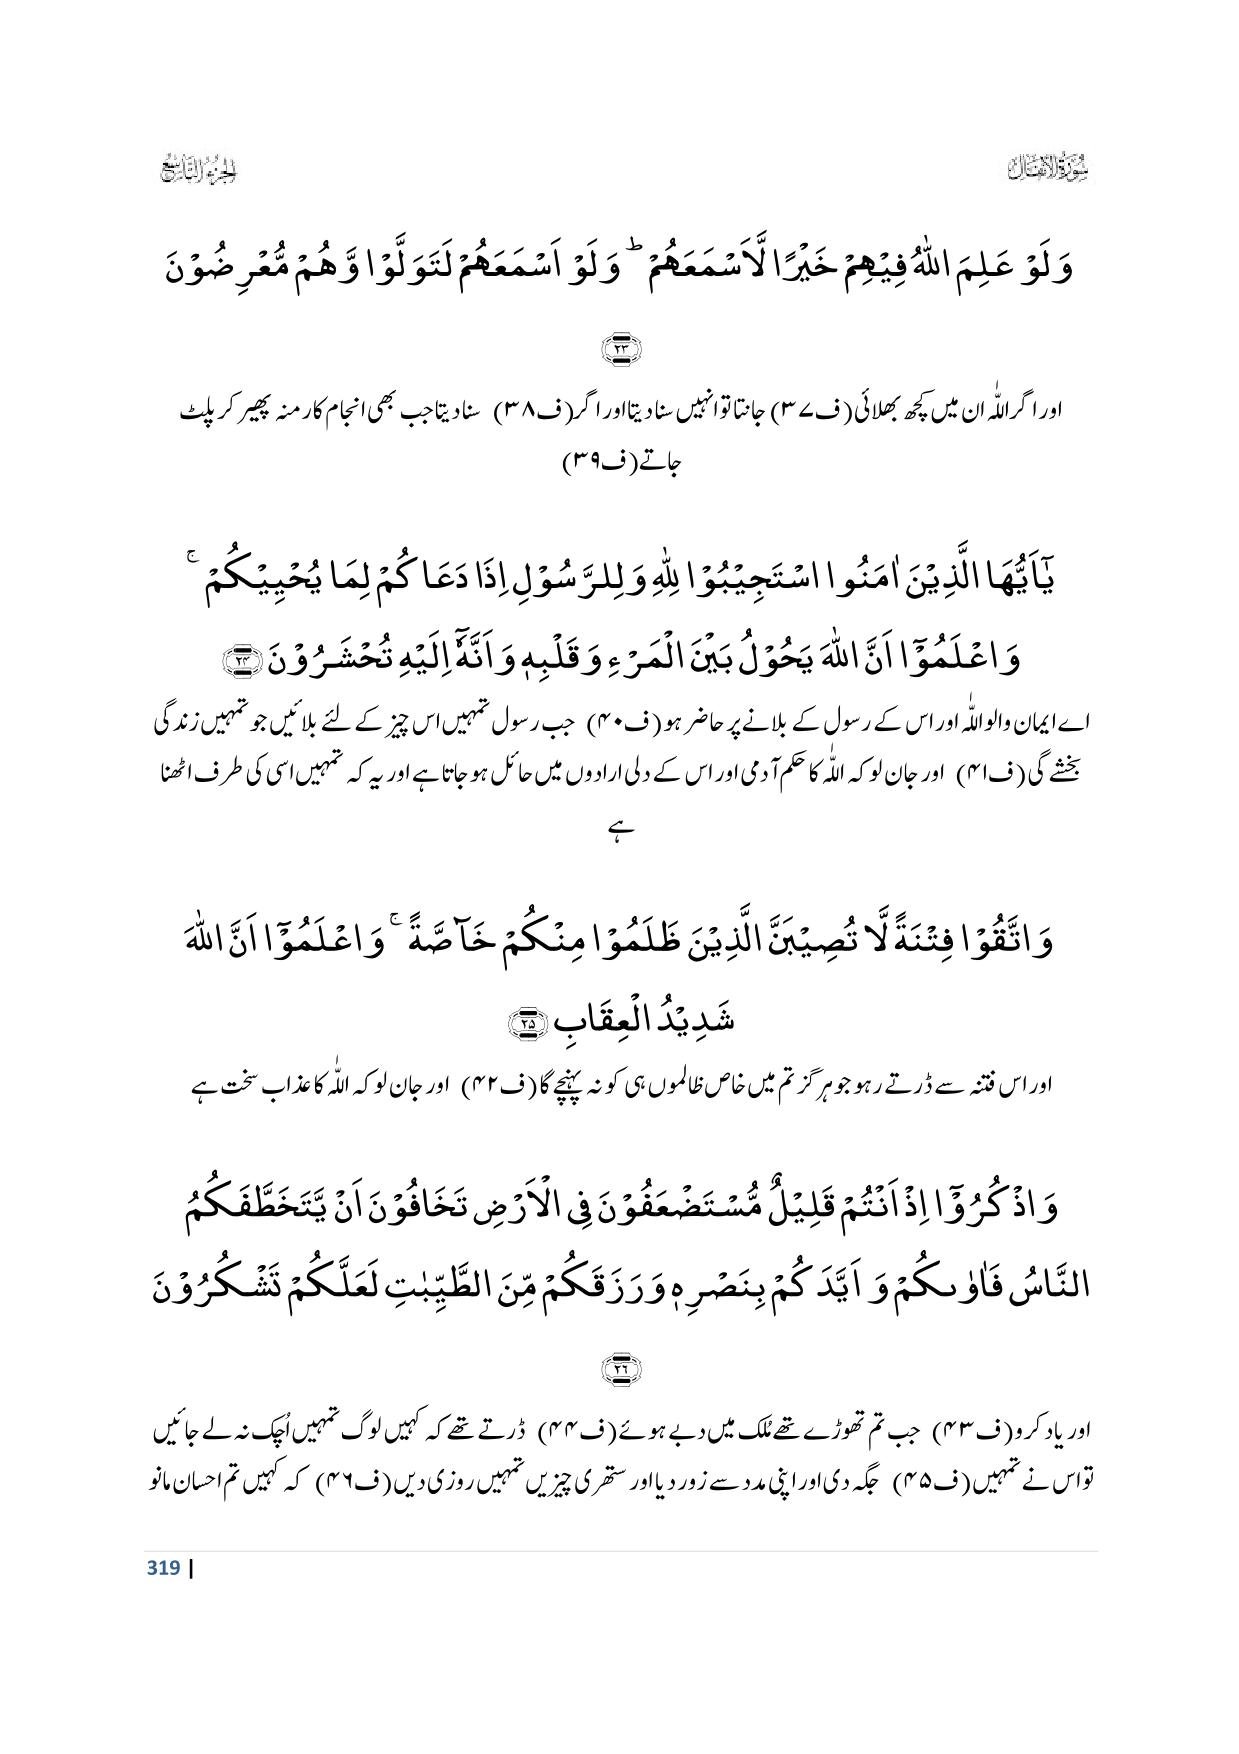 سُوْرَةُ الْاَنْفَال
الجزء التاسع
وَ لَوْ عَلِمَ اللّٰهُ فِیْهِمْ خَیْرًا لَّاَسْمَعَهُمْ ؕ وَ لَوْ اَسْمَعَهُمْ لَتَوَلَّوْا وَّ هُمْ مُّعْرِضُوْنَ
۲۳
اور اگر اللّٰہ ان میں کچھ بھلائی (ف۳۷) جانتا تو انہیں سنادیتا اور اگر (ف۳۸) سنادیتا جب بھی انجام کار منہ پھیر کر پلٹ
جاتے (ف۳۹)
یٰۤاَیُّهَا الَّذِیْنَ اٰمَنُوا اسْتَجِیْبُوْا لِلّٰهِ وَ لِلرَّسُوْلِ اِذَا دَعَاكُمْ لِمَا یُحْیِیْكُمْ ۚ
وَ اعْلَمُوْۤا اَنَّ اللّٰهَ یَحُوْلُ بَیْنَ الْمَرْءِ وَ قَلْبِهٖ وَ اَنَّهٗۤ اِلَیْهِ تُحْشَرُوْنَ ۲۴
اے ایمان والو اللّٰہ اور اس کے رسول کے بلانے پر حاضر ہو (ف۴۰) جب رسول تمہیں اس چیز کے لئے بلائیں جو تمہیں زندگی
بخشے گی (ف۴۱) اور جان لو کہ اللّٰہ کا حکم آدمی اور اس کے دلی ارادوں میں حائل ہو جاتا ہے اور یہ کہ تمہیں اسی کی طرف اٹھنا
ہے
وَ اتَّقُوْا فِتْنَةً لَّا تُصِیْبَنَّ الَّذِیْنَ ظَلَمُوْا مِنْكُمْ خَآصَّةً ۚ وَ اعْلَمُوْۤا اَنَّ اللّٰهَ
شَدِیْدُ الْعِقَابِ ۲۵
اور اس فتنہ سے ڈرتے رہو جو ہر گز تم میں خاص ظالموں ہی کو نہ پہنچے گا (ف۴۲) اور جان لو کہ اللّٰہ کا عذاب سخت ہے
وَ اذْكُرُوْۤا اِذْ اَنْتُمْ قَلِیْلٌ مُّسْتَضْعَفُوْنَ فِی الْاَرْضِ تَخَافُوْنَ اَنْ یَّتَخَطَّفَكُمُ
النَّاسُ فَاٰوٰىكُمْ وَ اَیَّدَكُمْ بِنَصْرِهٖ وَ رَزَقَكُمْ مِّنَ الطَّیِّبٰتِ لَعَلَّكُمْ تَشْكُرُوْنَ
۲۶
اور یاد کرو (ف۴۳) جب تم تھوڑے تھے مُلک میں دبے ہوئے (ف۴۴) ڈرتے تھے کہ کہیں لوگ تمہیں اُچک نہ لے جائیں
تو اس نے تمہیں (ف۴۵) جگہ دی اور اپنی مدد سے زور دیا اور ستھری چیزیں تمہیں روزی دیں (ف۴۶) کہ کہیں تم احسان مانو
319 |